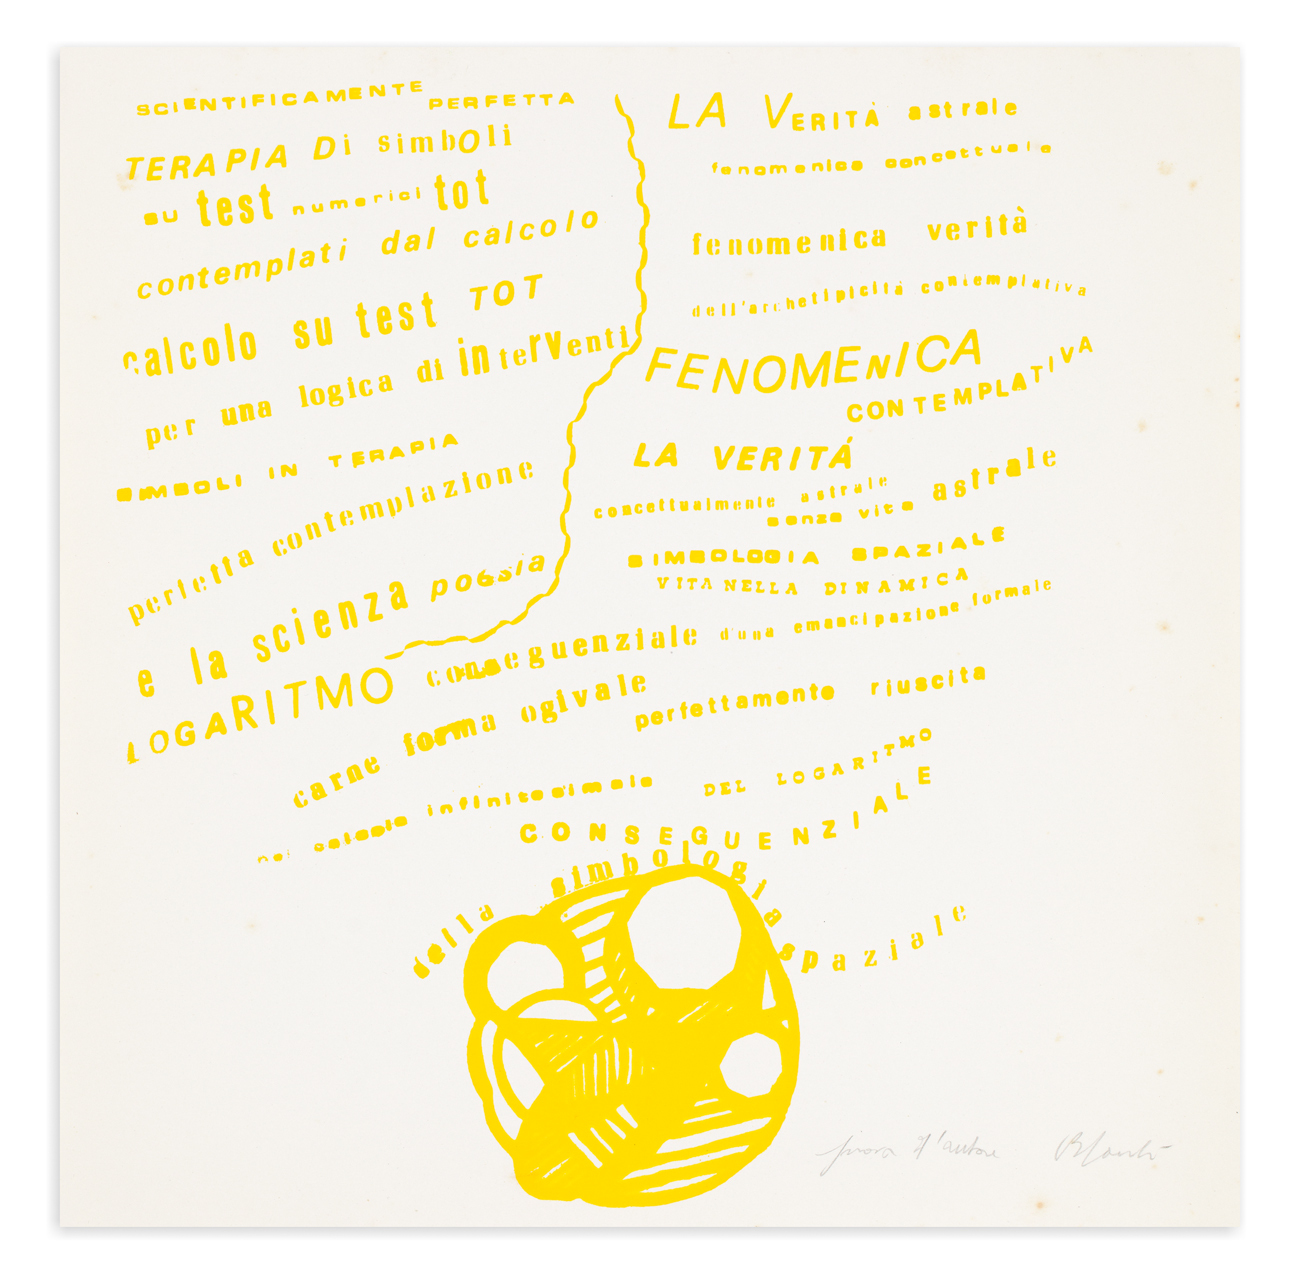 SCIENTIFICAMENTE PERFETTA
TERAPIA Di simbOli
su test numerici tot
contemplati dal calcolo
calcolo su test TOT
per una logica di interventi
SIMBOLI IN TERAPIA
perfetta contemplazione
e la scienza poesia
LOGARITMO conseguenziale d'una emancipazione formale
carne forma ogivale perfettamente riuscita
nei calcolo infinitesimale DEL LOGARITMO
CONSEGUENZIALE
della simbologia spaziale
LA VERITÀ astrale
fenomenica concettuale
fenomenica verità
dell'archetipicità contemplativa
FENOMEnICA
CONTEMPLATIVA
LA VERITÁ
concettualmente astrale
senza vita astrale
SIMBOLOGIA SPAZIALE
VITA NELLA DINAMICA
prova d'autore